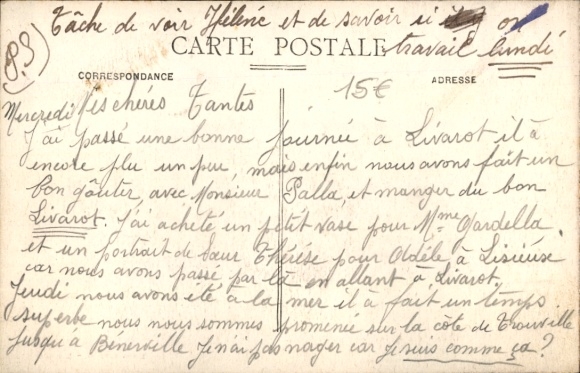 P.S Tâche de voir Hélène et de savoir si on
travail lundi
CARTE POSTALE
CORRESPONDANCE
ADRESSE
15€
Mercredi Mes chéres Tantes
J'ai passé une bonne journée à Livarot il à
encore plu un peu, mais enfin nous avons fait un
bon goûter, avec Monsieur Palla, et manger du bon
Livarot. J'ai acheté un petit vase pour Mme Mardella
et un portrait de Sœur Thérése pour Odéle, à Lisieuse
car nous avons passé par là en allant à Livarot.
Jeudi nous avons été à la mer il a fait un temps
superbe nous nous sommes promenée sur la côte de Trouville
jusqu'à Bénerville Je n'ai pas nager car je suis comme ça?